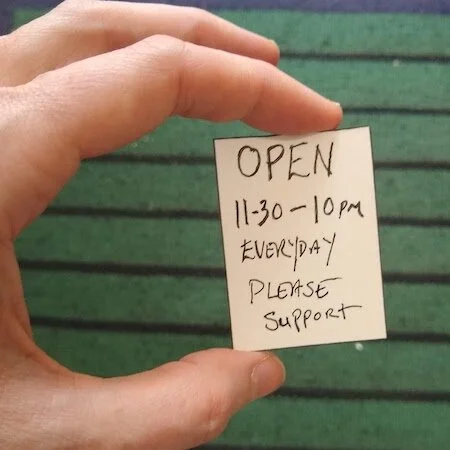 OPEN
11-30 - 10 PM
EVERYDAY
PLEASE
SUPPORT